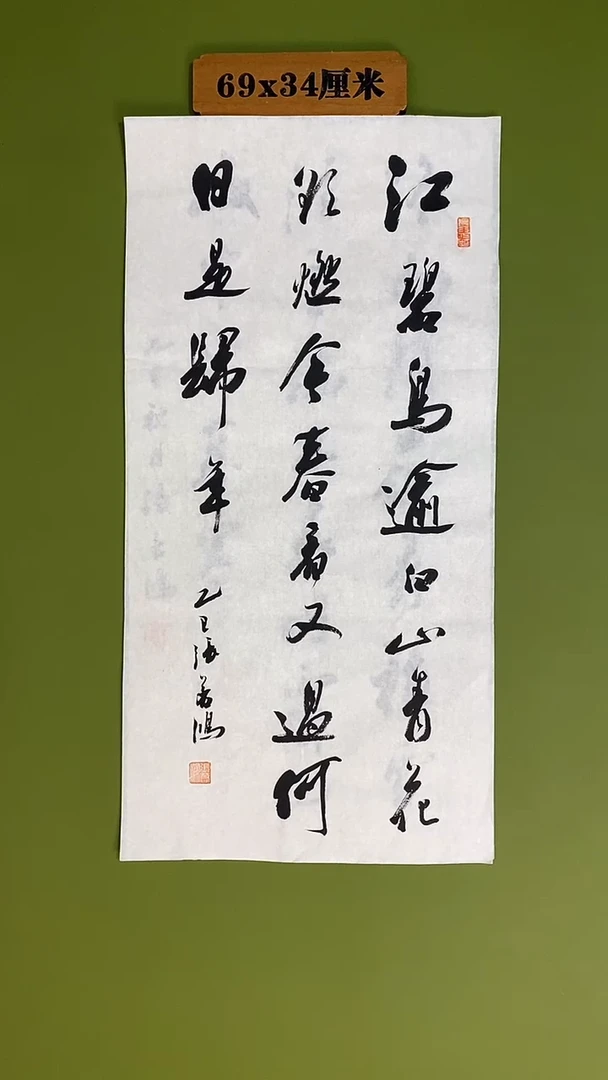 69x34厘米
江碧鳥逾白山青花
欲燃今春看又過何
日是歸年
乙巳張萬鴻